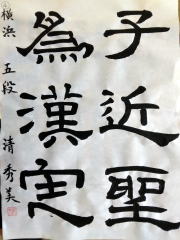 子近聖
為漢定
横浜 五段 清秀美